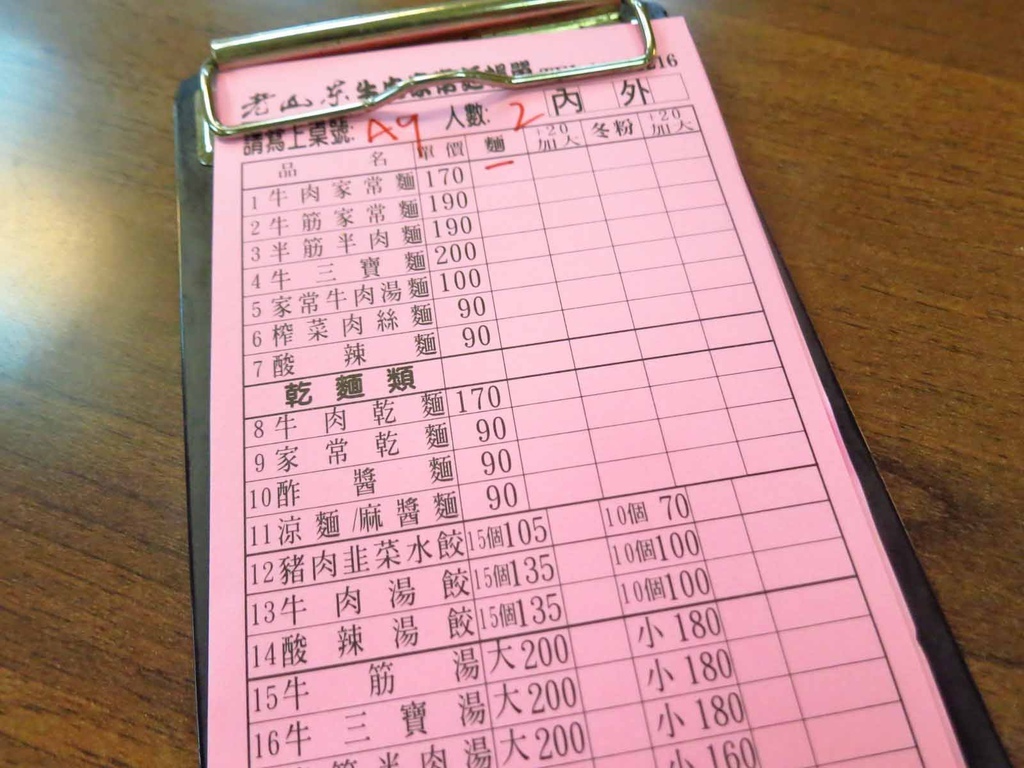 老山东牛肉家常麵
16
請寫上桌號: A9 人數: 2 內 外
品名 單價 麵 +20加大 冬粉 +20加大
1 牛肉家常麵 170
2 牛筋家常麵 190
3 半筋半肉麵 190
4 牛三寶麵 200
5 家常牛肉湯麵 100
6 榨菜肉絲麵 90
7 酸辣麵 90
乾麵類
8 牛肉乾麵 170
9 家常乾麵 90
10 酢醬麵 90
11 涼麵/麻醬麵 90
12 豬肉韭菜水餃 15個105 10個 70
13 牛肉湯餃 15個135 10個100
14 酸辣湯餃 15個135 10個100
15 牛筋湯 大200 小 180
16 牛三寶湯 大200 小 180
筋半肉湯 大200 小 180
小 160